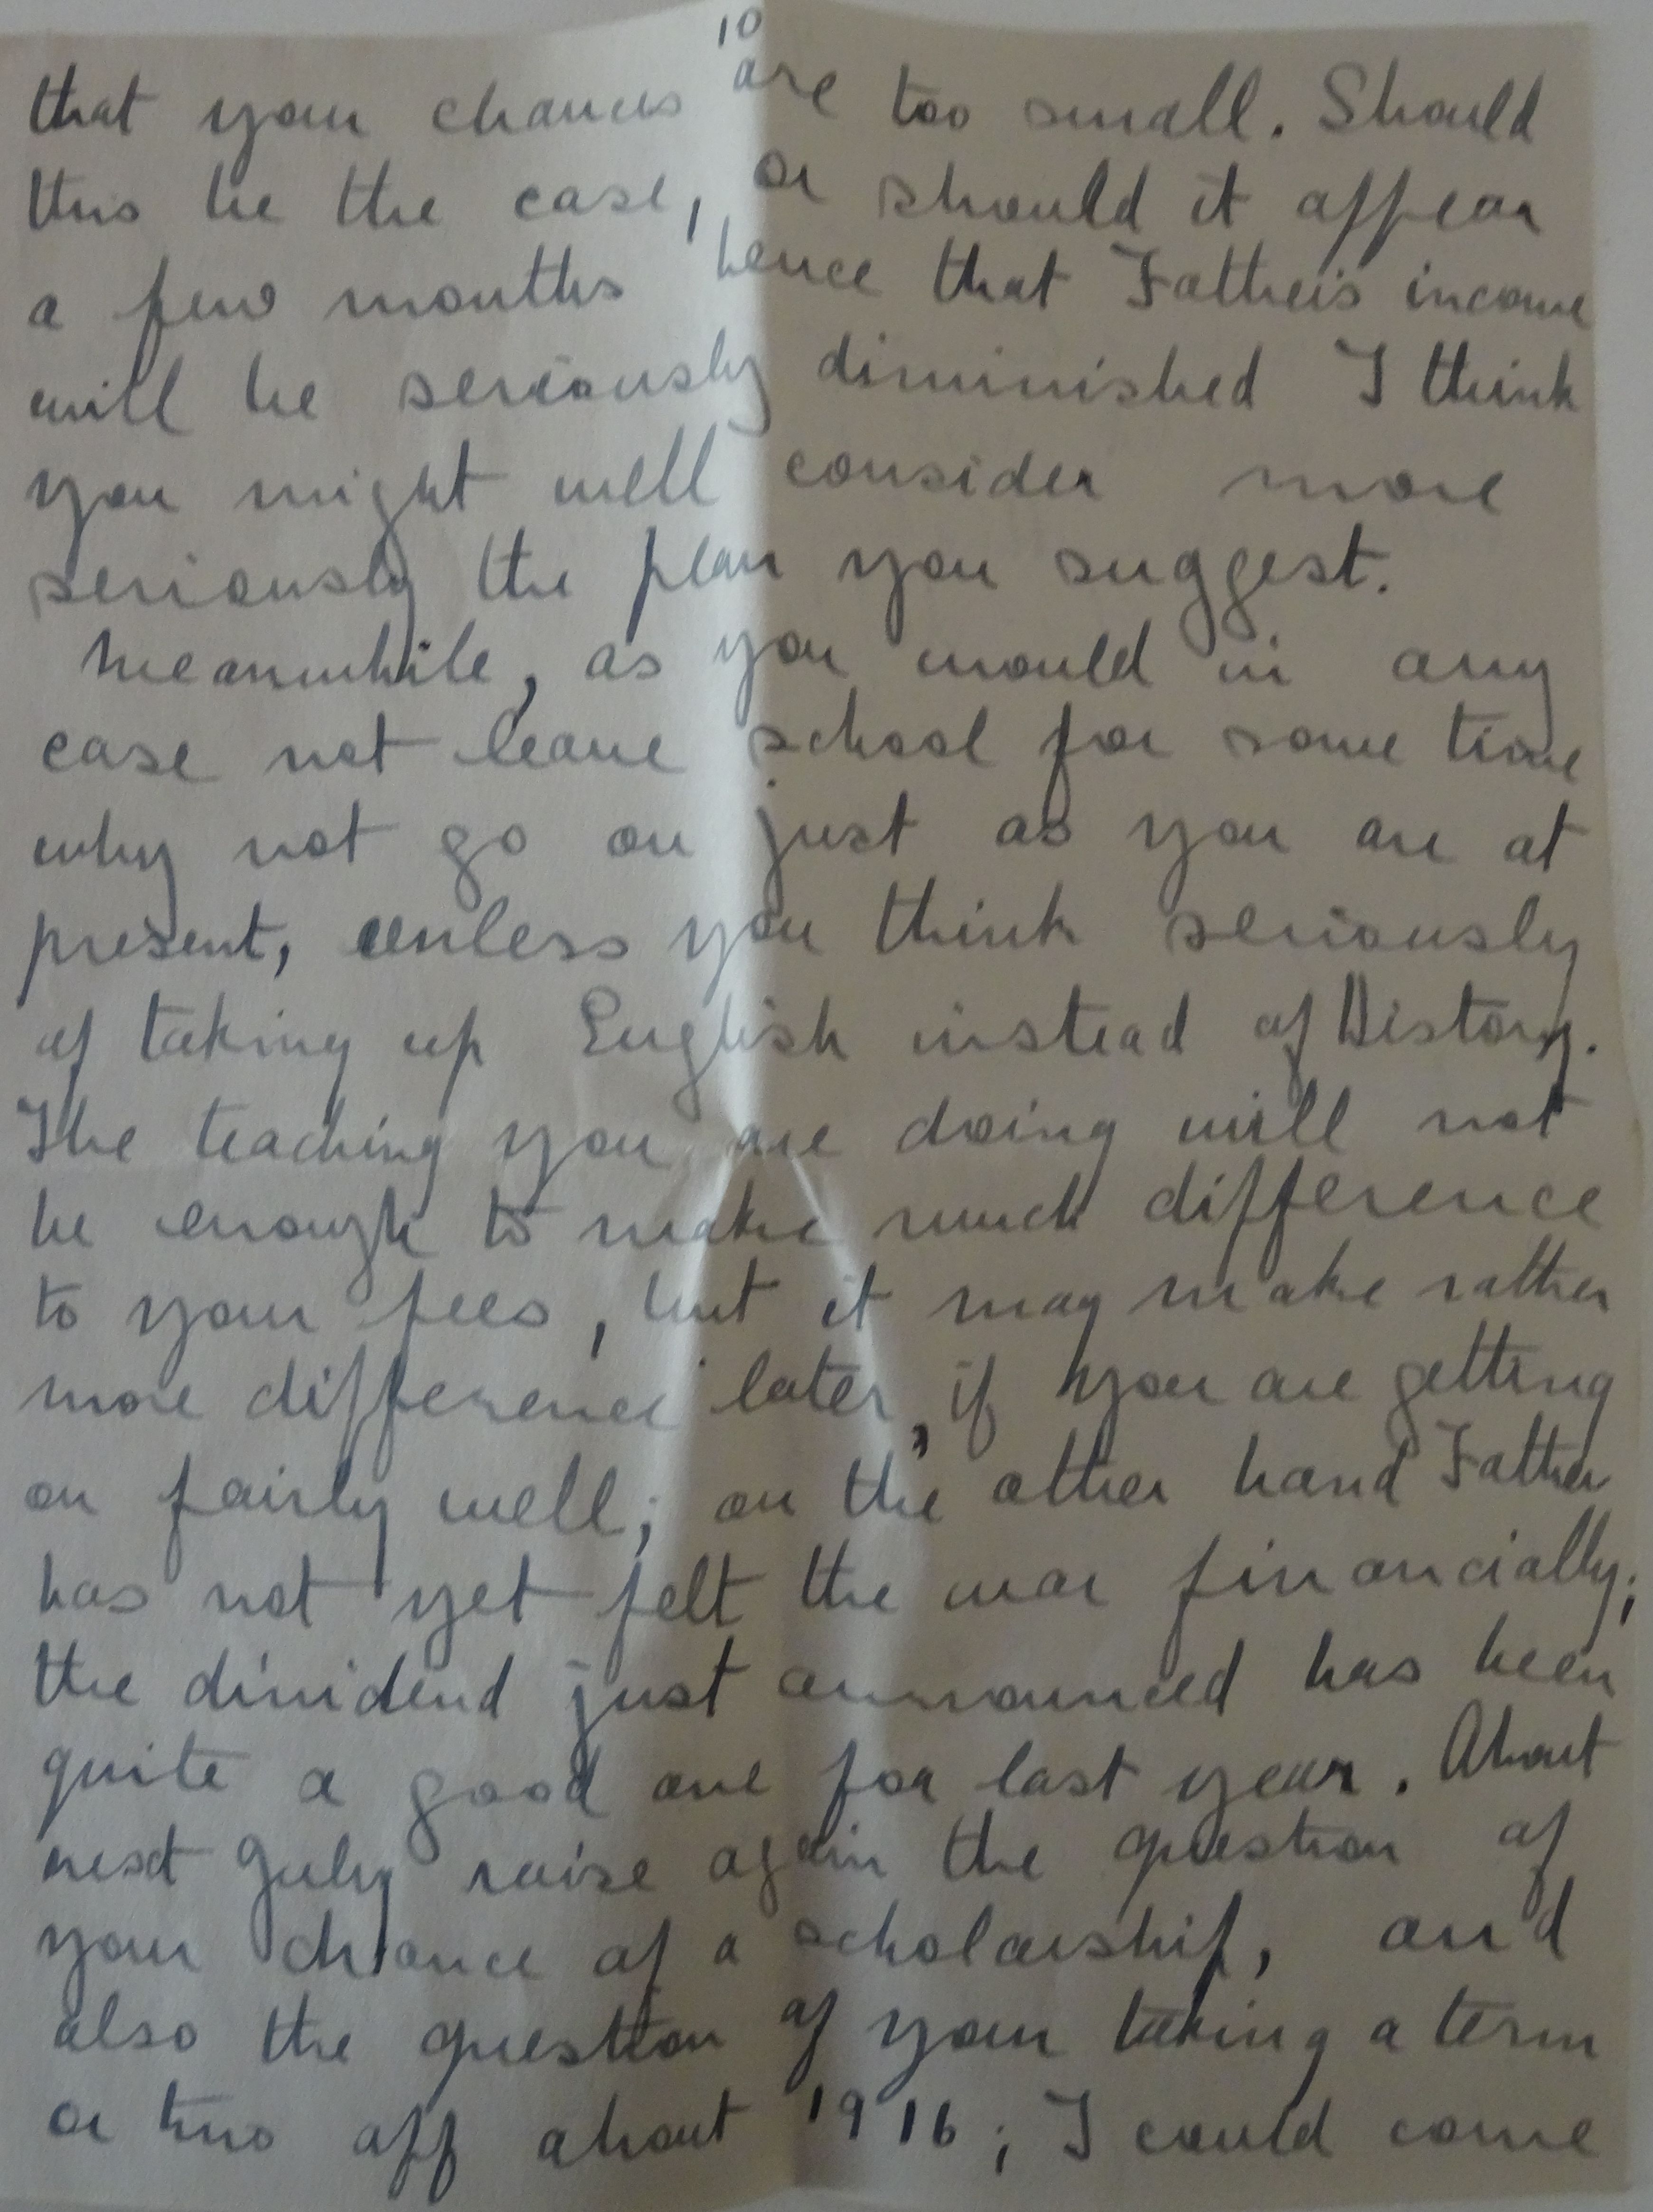 10
that your chances are too small. Should
this be the case, or should it appear
a few months hence that Father's income
will be seriously diminished I think
you might well consider more
seriously the plan you suggest.
Meanwhile, as you would in any
case not leave school for some time
why not go on just as you are at
present, unless you think seriously
of taking up English instead of History.
The teaching you are doing will not
be enough to make much difference
to your fees, but it may make rather
more difference later, if you are getting
on fairly well; on the other hand Father
has not yet felt the war financially;
the dividend just announced has been
quite a good one for last year. About
next July raise again the question of
your chance of a scholarship, and
also the question of your taking a term
or two off about 1916; I could come